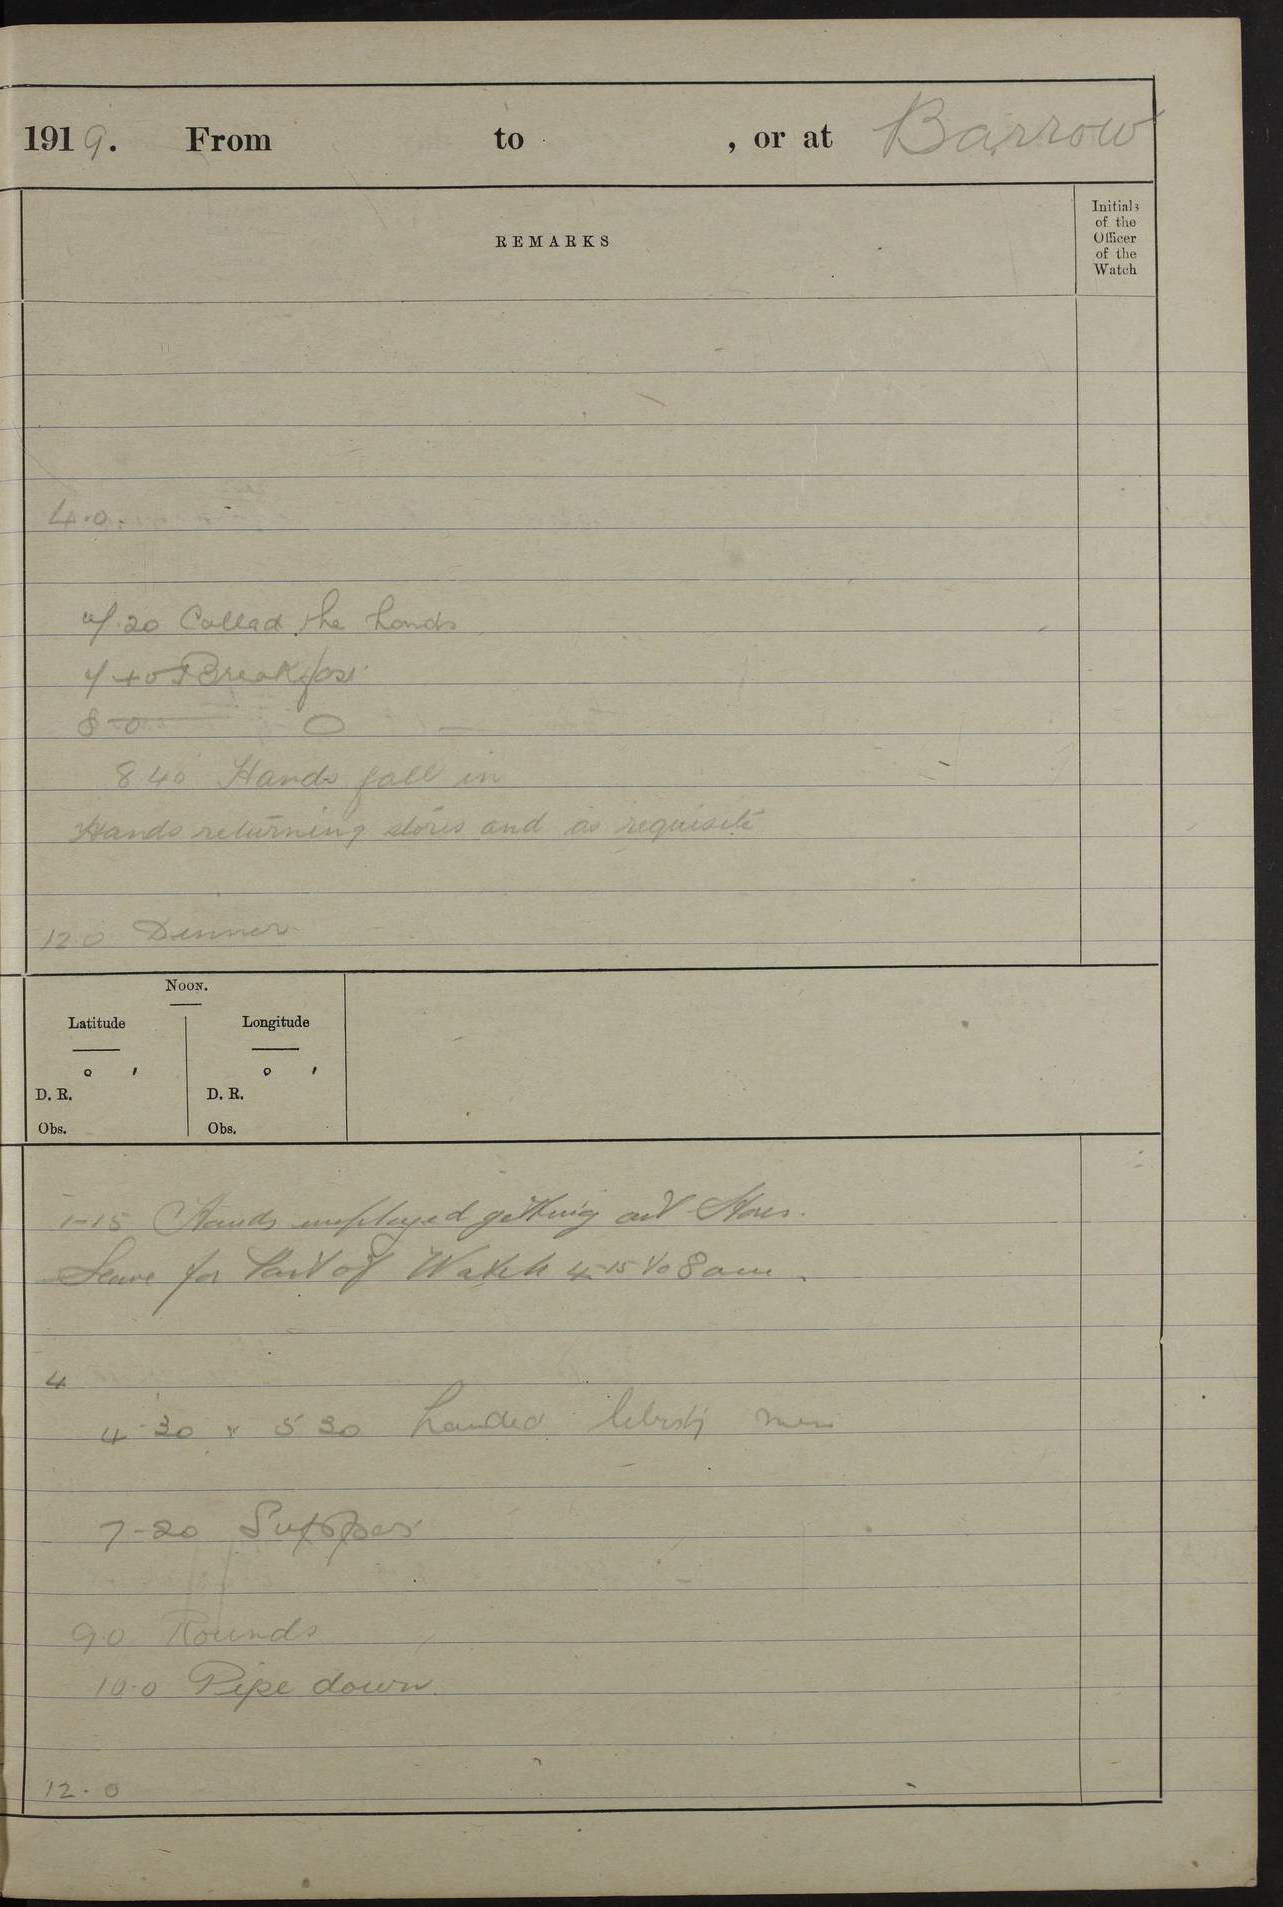 1919. From to , or at Barrow
REMARKS
Initials
of the
Officer
of the
Watch
4.0.
7.20 Called the hands
7 40 Breakfast
8 0
8 40 Hands fall in
Hands returning stores and as requisite
12.0 Dinner
NOON.
Latitude Longitude
° ′ ° ′
D. R. D. R.
Obs. Obs.
1-15 Hands employed getting out Stores.
Leave for Part of Watch 4-15 to 8 am.
4
4-30 5 30 Landed liberty men
7-20 Supper
9.0 Rounds
10.0 Pipe down.
12.0